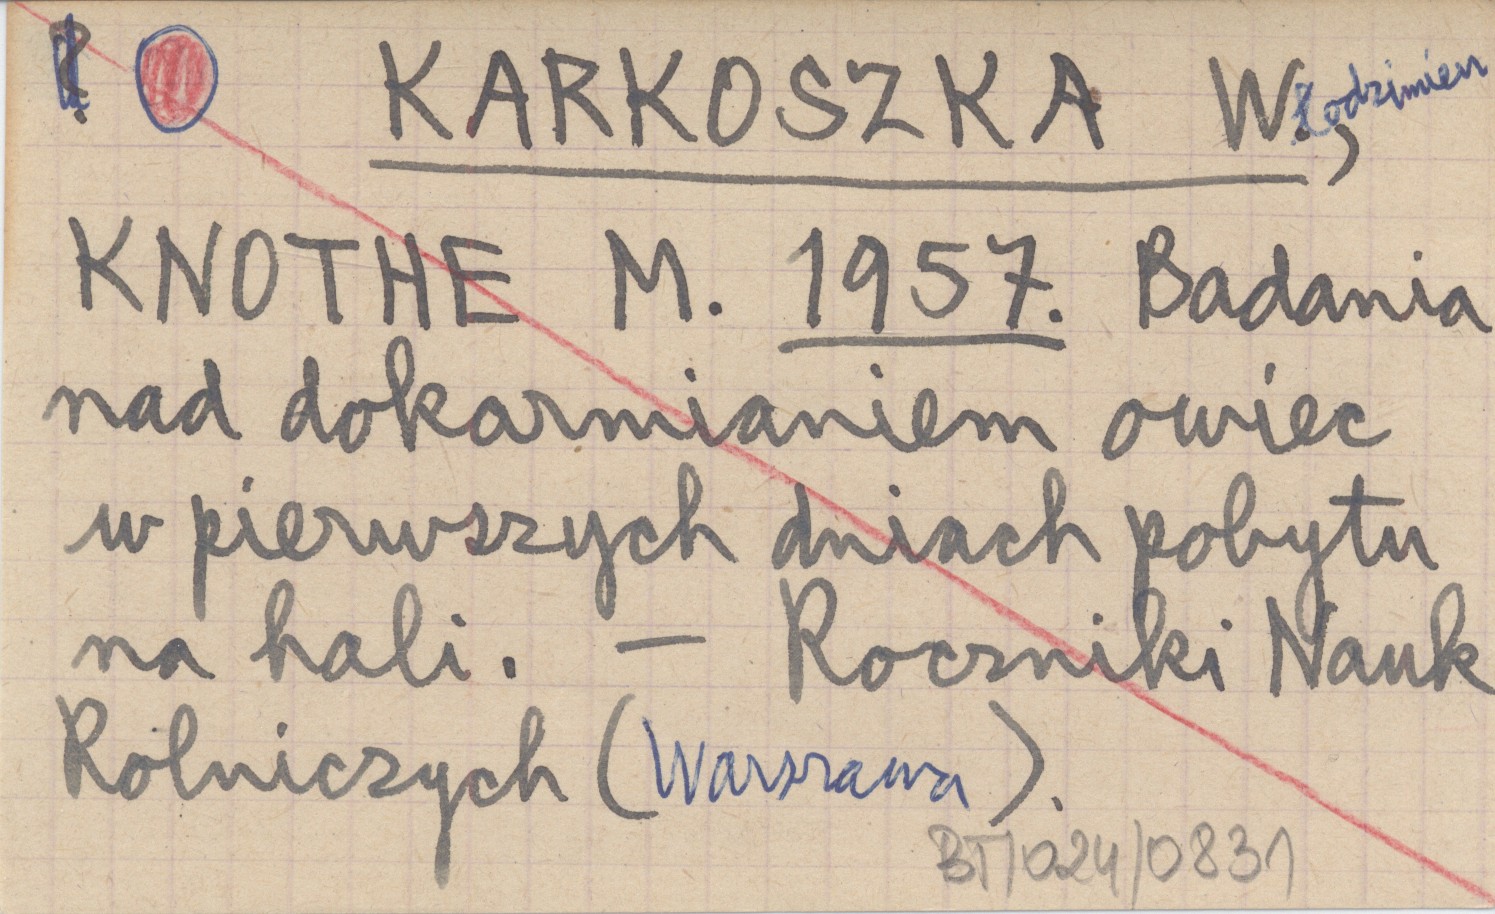 KARKOSZKA W.łodzimierz,
KNOTHE M. 1957. Badania
nad dokarmianiem owiec
w pierwszych dniach pobytu
na hali. — Roczniki Nauk
Rolniczych (Warszawa).
BT/024/0831